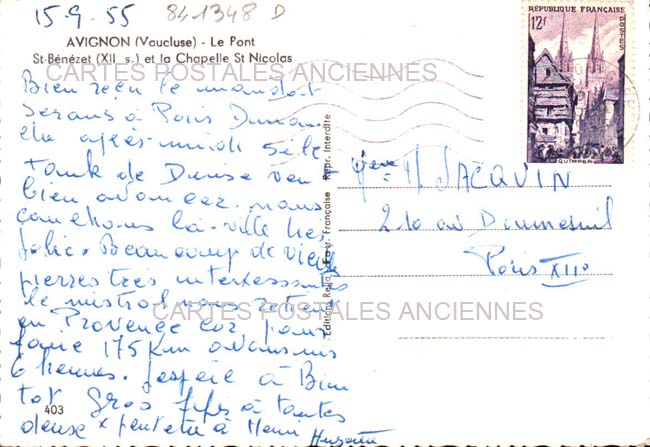 15-9.55 841348 D
AVIGNON (Vaucluse) - Le Pont
St-Bénézet (XII s.) et la Chapelle St Nicolas
CARTES POSTALES ANCIENNES
Bien reçu le mandat
serons à Paris
après-midi si le
de Denise
bien avancer. nous
la ville très
jolie. Beaucoup de vieilles
pierres très interessantes
le mistral nous retient
en Provence car pour
faire 175 Km avons mis
6 heures. J'espère à Bien
tot Gros à toutes
deux x peut etre à Henri
403
REPUBLIQUE FRANÇAISE
12F
POSTES
QUIMPER
M JACQUIN
210 av Daumesnil
Paris XII°
CARTES POSTALES ANCIENNES
Editions Rella, Fabr. Française Repr. Interdite